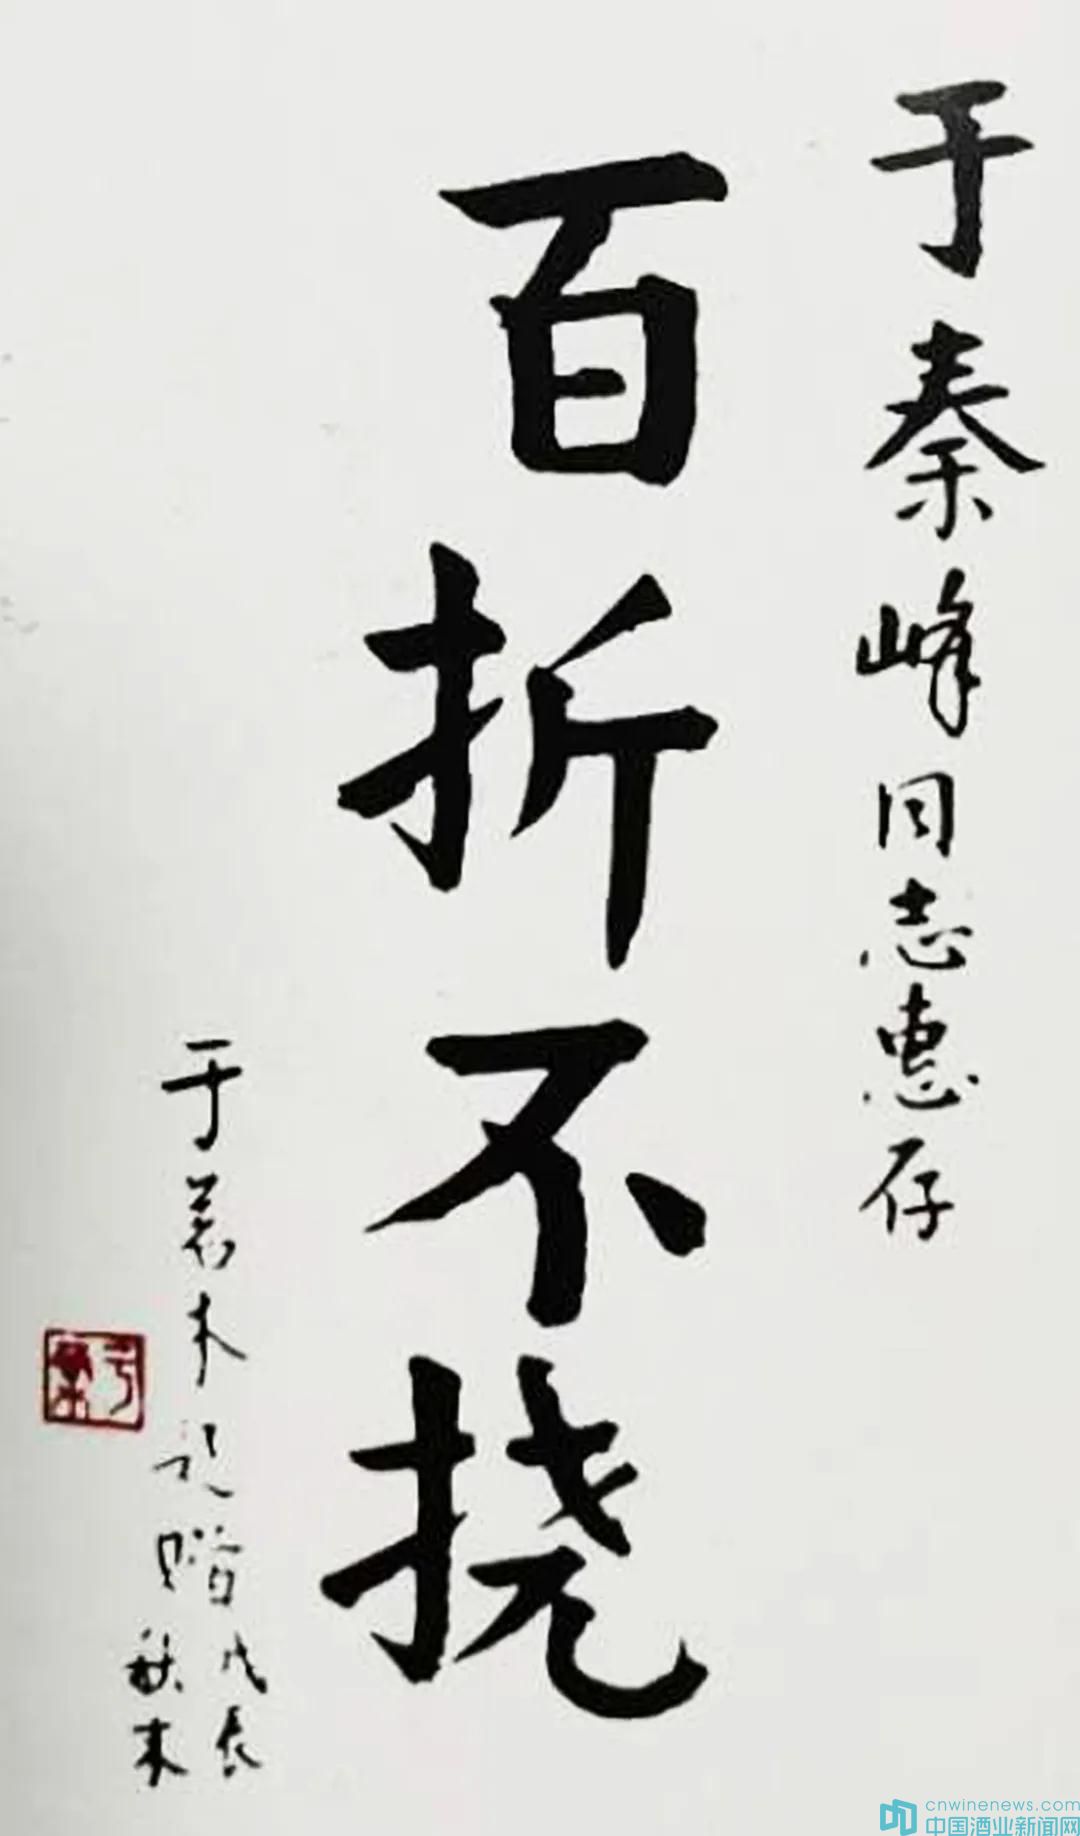 于秦峰同志惠存
百折不挠
于若木记赠戊辰
秋末
于若木
cnwinenews.com
中国酒业新闻网